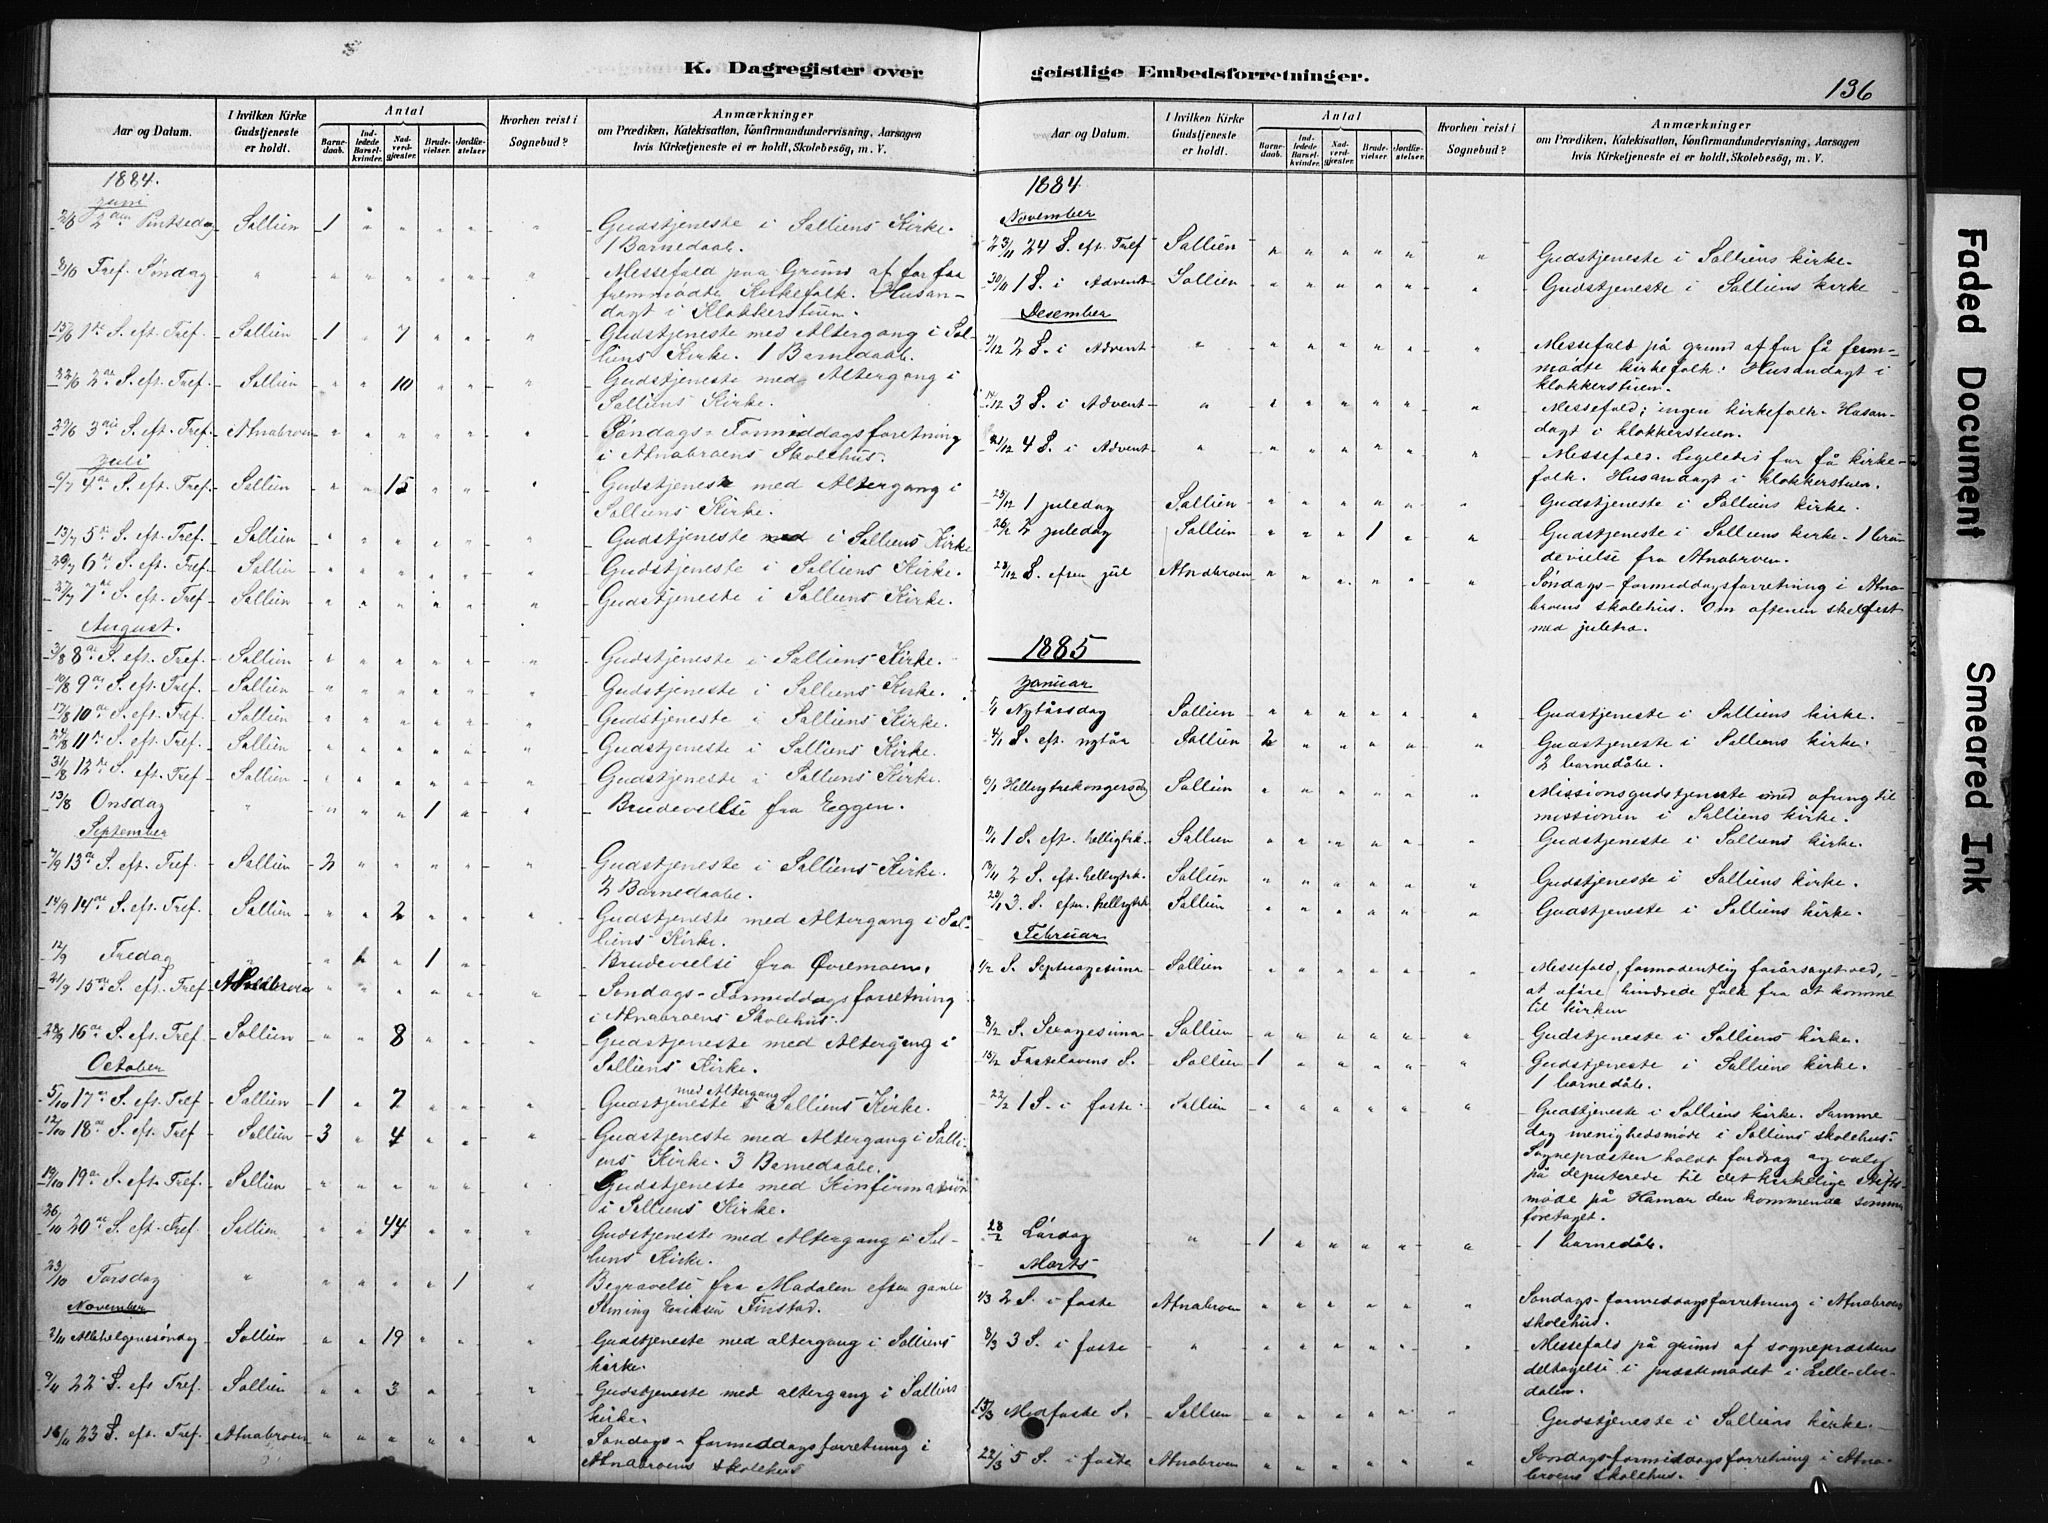 K. Dagregister over geistlige Embedsforretninger.
136
Aar og Datum.
I hvilken Kirke Gudstjeneste er holdt.
Antal
Barnedaab.
Indledede Barselkvinder.
Nadverdgjester.
Brudevielser.
Jordfæstelser.
Hvorhen reist i Sognebud?
Anmærkninger
om Prædiken, Katekisation, Konfirmandundervisning, Aarsagen
hvis Kirketjeneste ei er holdt, Skolebesøg, m. V.
1884.
Juni
2/6 2den Pintsedag Sollien 1 Gudstjeneste i Solliens Kirke.
1 Barnedaab.
8/6 Tref. Søndag " Messefald paa Grund af for faa
fremmødte Kirkefolk. Husan-
dagt i Klokkerstuen.
15/6 1ste S. eft. Tref. Sollien 1 7 Gudstjeneste med Altergang i Sol-
liens Kirke. 1 Barnedaab.
22/6 2den S. eft. Tref. Sollien 10 Gudstjeneste med Altergang i
Solliens Kirke.
29/6 3die S. eft. Tref. Atnabroen Søndags-Formiddagsforretning
i Atnabroens Skolehus.
Juli
6/7 4de S. eft. Tref. Sollien 15 Gudstjeneste med Altergang i
Solliens Kirke.
13/7 5te S. eft. Tref. Sollien Gudstjeneste med i Solliens Kirke
20/7 6te S. eft. Tref. Sollien Gudstjeneste i Solliens Kirke.
27/7 7de S. eft. Tref. Sollien Gudstjeneste i Solliens Kirke.
August.
3/8 8de S. eft. Tref. Sollien Gudstjeneste i Solliens Kirke.
10/8 9de S. eft. Tref. Sollien Gudstjeneste i Solliens Kirke.
17/8 10de S. eft. Tref. Sollien Gudstjeneste i Solliens Kirke.
24/8 11te S. eft. Tref. Sollien Gudstjeneste i Solliens Kirke.
31/8 12te S. eft. Tref. Sollien Gudstjeneste i Solliens Kirke.
13/8 Onsdag " 1 Brudevielse fra Eggen.
September
7/9 13de S. eft. Tref. Sollien 2 Gudstjeneste i Solliens Kirke.
2 Barnedaabe.
14/9 14de S. eft. Tref. Sollien 2 Gudstjeneste med Altergang i Sol-
liens Kirke.
12/9 Fredag " 1 Brudevielse fra Øvremoen.
21/9 15de S. eft. Tref Atnabroen Søndags-Formiddagsforretning
i Atnabroens Skolehus.
28/9 16de S. eft. Tref Sollien 8 Gudstjeneste med Altergang i
Solliens Kirke.
October
5/10 17de S. eft. Tref Sollien 1 7 Gudstjeneste med Altergang i Solliens Kirke.
12/10 18de S. eft. Tref Sollien 3 4 Gudstjeneste med Altergang i Solli-
ens Kirke. 3 Barnedaabe.
19/10 19de S. eft. Tref. Sollien Gudstjeneste med Konfirmation
i Solliens Kirke.
26/10 20de S. eft. Tref. Sollien 44 Gudstjeneste med Altergang i Sol-
liens Kirke.
23/10 Torsdag " 1 Begravelse fra Modalen efter gamle
Eriksen Finstad.
November
2/11 Allehelgenssøndag Sollien 19 Gudstjeneste med altergang i Solliens
kirke.
9/11 22. S. eft Tref. Sollien 3 Gudstjeneste med altergang i Solliens
kirke.
16/11 23 S. eft. Tref. Atnabroen Søndags-formiddagsforretning i
Atnabroens skolehus
Aar og Datum.
I hvilken Kirke Gudstjeneste er holdt.
Antal
Barnedaab.
Indledede Barselkvinder.
Nadverdgjester.
Brudevielser.
Jordfæstelser.
Hvorhen reist i Sognebud?
Anmærkninger
om Prædiken, Katekisation, Konfirmandundervisning, Aarsagen
hvis Kirketjeneste ei er holdt, Skolebesøg, m. V.
1884
November
23/11 24 S. eft. Tref Sollien Gudstjeneste i Solliens kirke.
30/11 1 S. i Advent Sollien Gudstjeneste i Solliens kirke
Desember
7/12 2 S. i Advent " Messefald på grund af for få frem-
mødte kirkefolk. Husandagt i
klokkerstuen.
14/12 3 S. i Advent " Messefald; ingen kirkefolk. Husan-
dagt i klokkerstuen.
21/12 4 S. i Advent " Messefald. Ligeledes for få kirke-
folk. Husandagt i klokkerstuen.
25/12 1 juledag Sollien Gudstjeneste i Solliens kirke.
26/12 2 juledag Sollien 1 Gudstjeneste i Solliens kirke. 1 bru-
devielse fra Atnabroen.
28/12 S. efter jul Atnabroen Søndags-formiddagsforretning i Atna-
broens skolehus. Om aftenen skolefest
med juletræ.
1885
Januar
1/1 Nytårsdag Sollien Gudstjeneste i Solliens kirke.
4/1 S. eft. nytår Sollien 2 Gudstjeneste i Solliens kirke.
2 barnedåbe.
6/1 Helligtrekongersdag Sollien Missionsgudstjeneste med ofring til
missionen i Solliens kirke.
11/1 1 S. eft. helligtrk. Sollien Gudstjeneste i Solliens kirke.
18/1 2 S. eft. helligtrk. Sollien Gudstjeneste i Solliens kirke.
25/1 3. S. efter helligtrk Sollien Gudstjeneste i Solliens kirke.
Februar
1/2 S. Septuagesima Sollien Messefald, formodentlig forårsaget ved,
at uføre hindrede folk fra at komme
til kirken
8/2 S. Sexagesima Sollien Gudstjeneste i Solliens kirke.
15/2 Fastelavens S. Sollien 1 Gudstjeneste i Solliens kirke.
1 barnedåb.
22/2 1 S. i faste Sollien Gudstjeneste i Solliens kirke. Samme
dag menighedsmøde i Solliens skolehus.
Sognepræsten holdt fordrag og valg
på deputerede til det kirkelige stifts-
møde på Hamar den kommende sommer
foretaget.
28/2 Lørdag " 1 1 barnedåb.
Marts
1/3 2 S. i faste Atnabroen Søndags-formiddagsforretning i Atnabroens
skolehus.
8/3 3 S. i faste " Messefald på grund af sognepræstens
deltagelse i præstemødet i Lille-Elv-
dalen.
15/3 Midfaste S. Sollien Gudstjeneste i Solliens kirke.
22/3 5 S. i faste Atnabroen Søndagsformiddagsforretning i Atna-
broens skolehus.
Faded Document
Smeared Ink